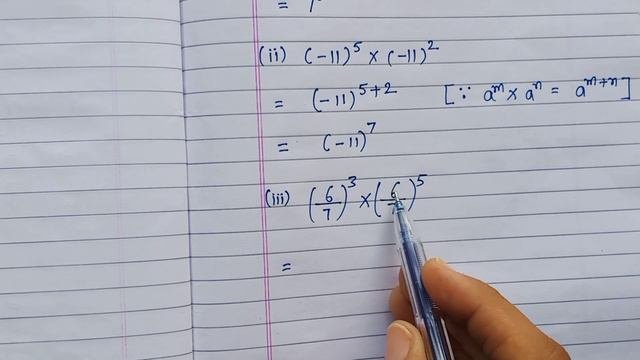 (ii) (-11)⁵ × (-11)²
= (-11)⁵⁺² [∵ aᵐ × aⁿ = aᵐ⁺ⁿ]
= (-11)⁷
(iii) (6/7)³ × (6/7)⁵
=